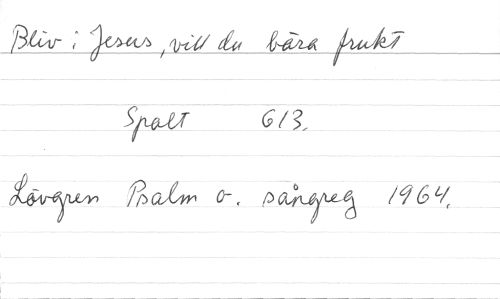 Bliv i Jesus, vill du bära frukt
Spalt 613.
Lövgren Psalm o. sångreg 1964.